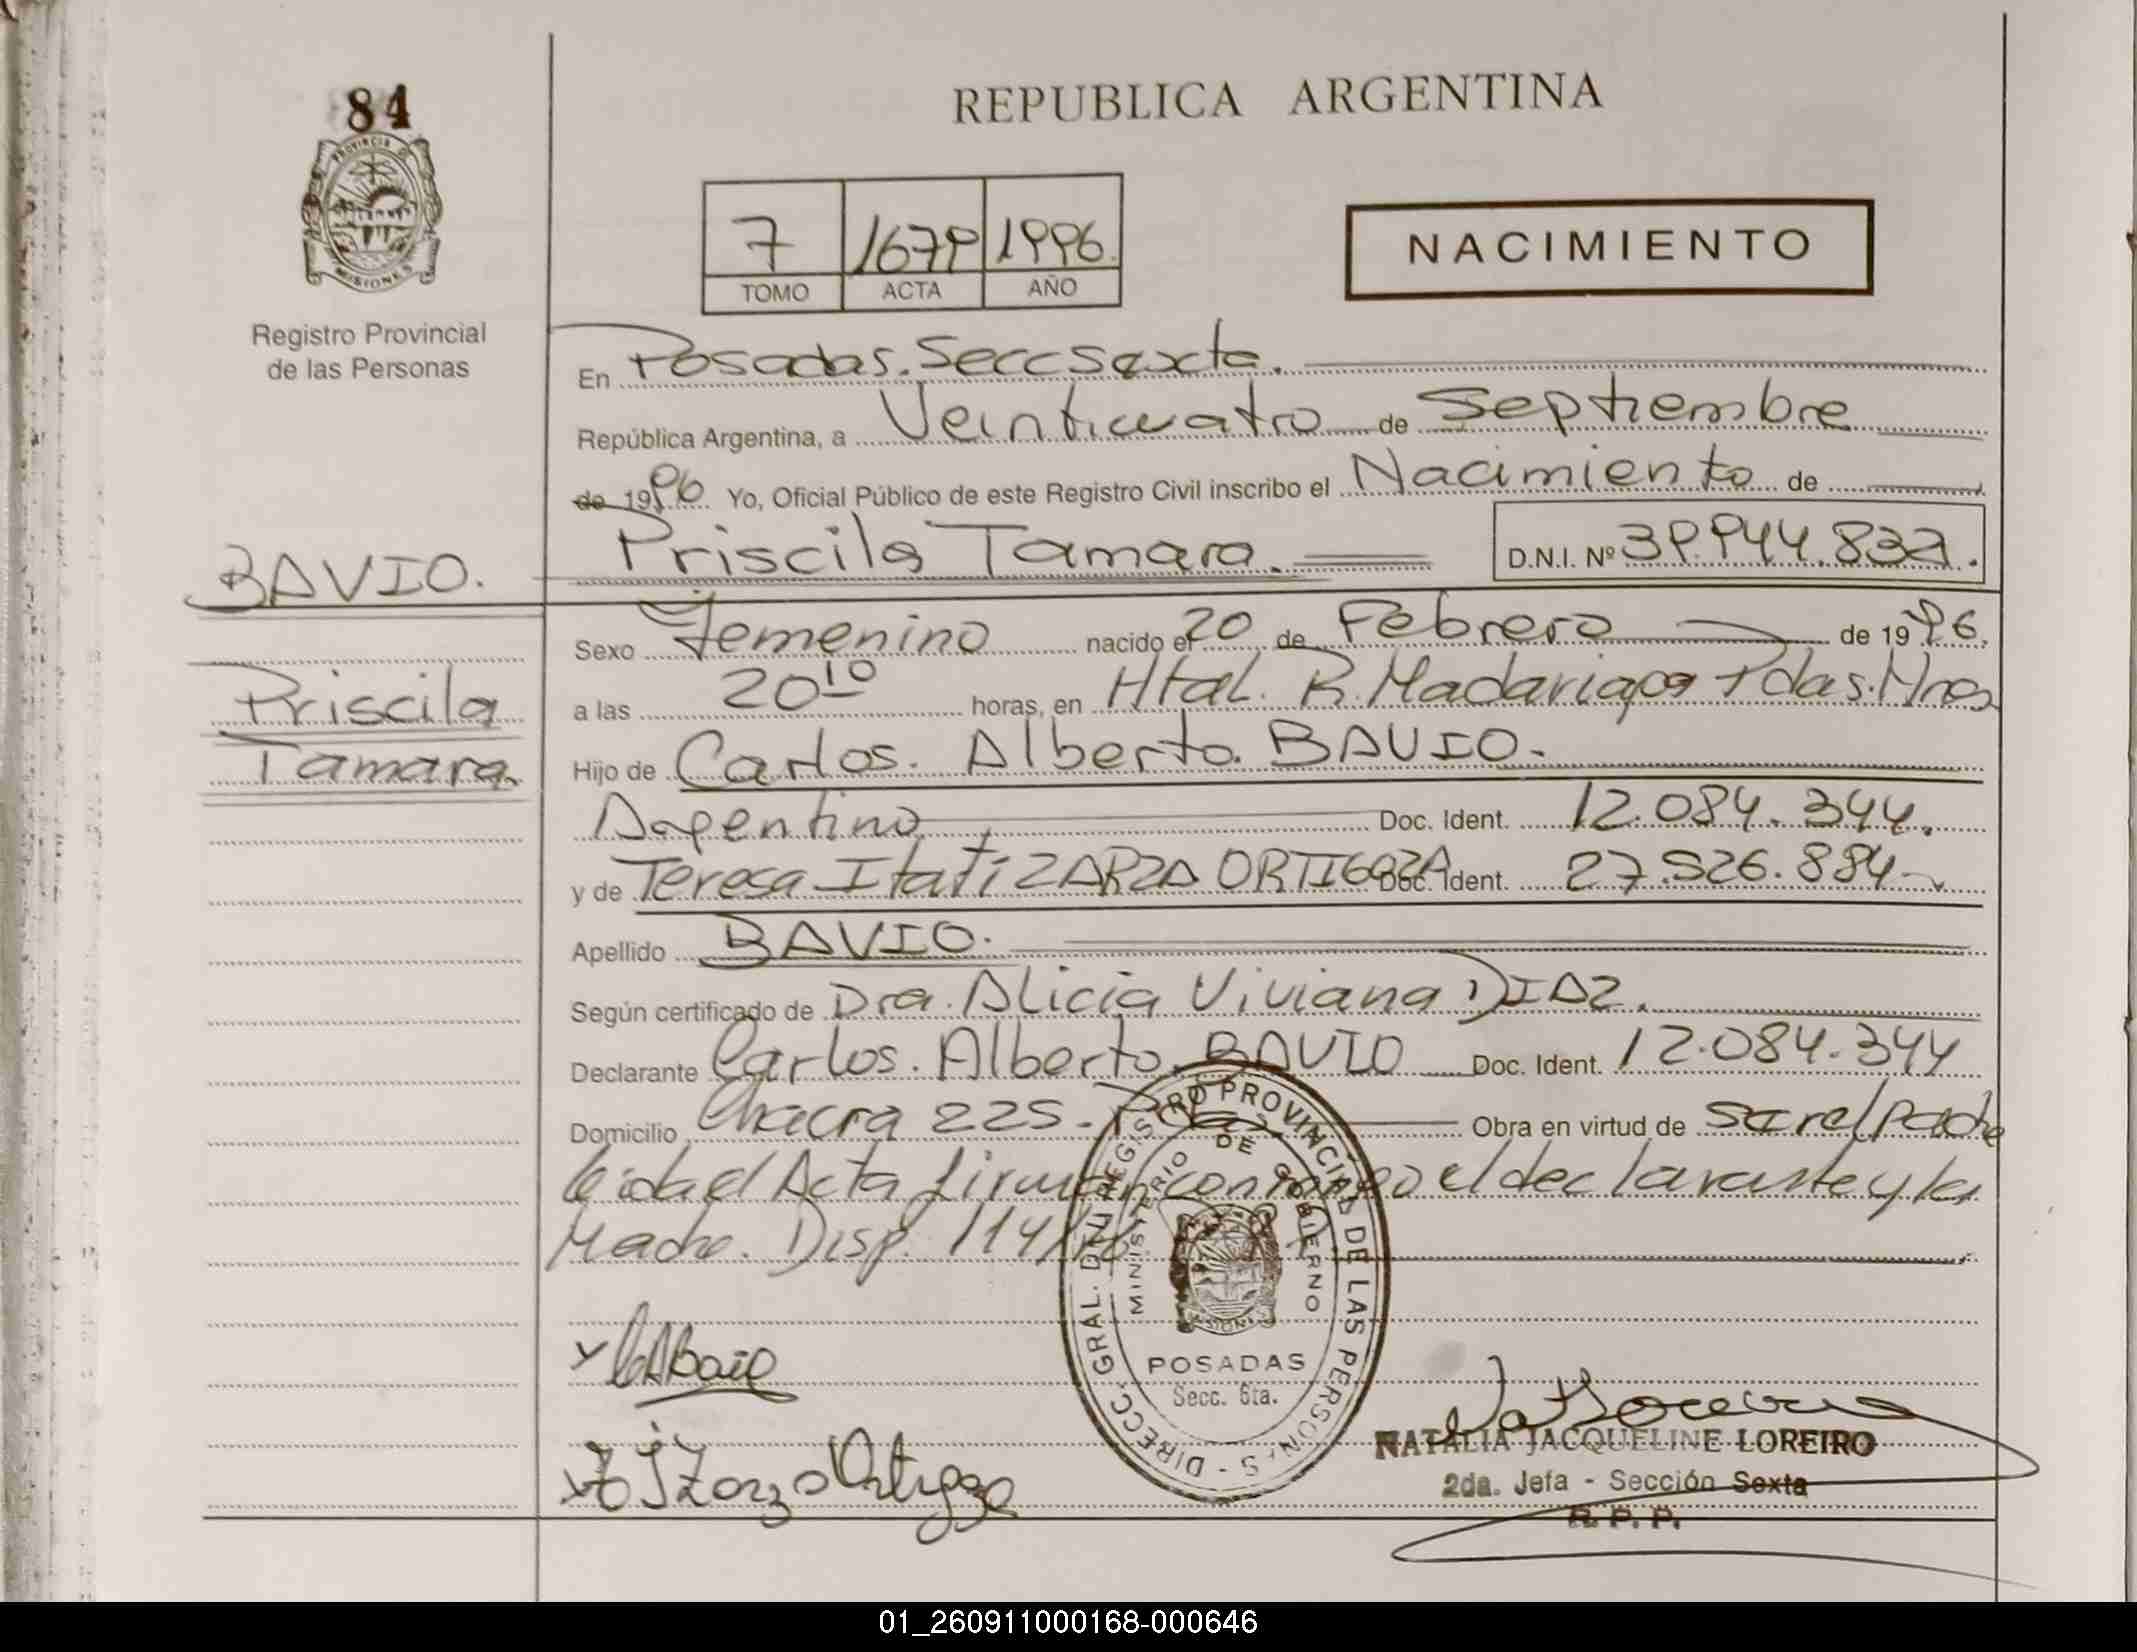 84
PROVINCIA DE
MISIONES
Registro Provincial
de las Personas
REPUBLICA ARGENTINA
7 1679 1996.
TOMO ACTA AÑO
NACIMIENTO
En Posadas. Secc Sexta.
República Argentina, a Veinticuatro de Septiembre
de 1996 Yo, Oficial Público de este Registro Civil inscribo el Nacimiento de
Priscila Tamara. D.N.I. Nº 39.944.832.
BAVIO.
Priscila
Tamara.
Sexo Femenino nacido el 20 de Febrero de 1996.
a las 20 10 horas, en Htal. R. Madariaga Pdas. Mnes
Hijo de Carlos. Alberto. BAVIO.
Argentino Doc. Ident. 12.084.344.
y de Teresa Itatí ZARZA ORTIGOZA Doc. Ident. 27.526.884
Apellido BAVIO.
Según certificado de Dra. Alicia Viviana DIAZ.
Declarante Carlos. Alberto. BAVIO Doc. Ident. 12.084.344
Domicilio Chacra 225. Pdas Obra en virtud de ser el padre
Leida el Acta firman conmigo el declarante y la
Madre. Disp. 114/
DIRECC. GRAL. DEL REGISTRO PROVINCIAL DE LAS PERSONAS
MINISTERIO DE GOBIERNO
MISIONES
POSADAS
Secc. 6ta.
T I Zarza Ortigoza
NATALIA JACQUELINE LOREIRO
2da. Jefa - Sección Sexta
R. P. P.
01_260911000168-000646